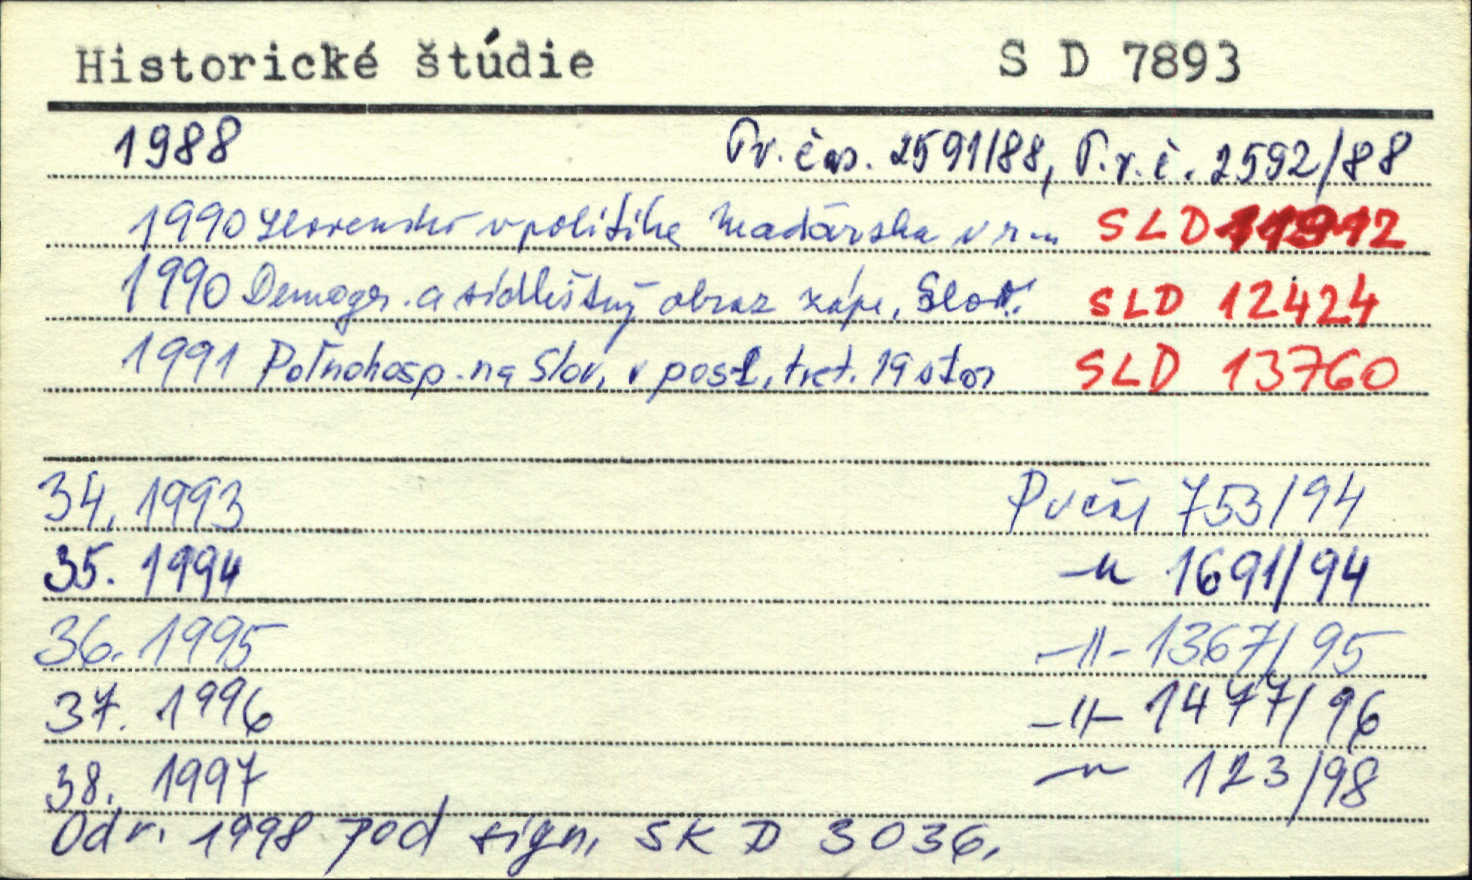 Historické štúdie S D 7893
1988 Pr. čas. 2591/88, P.r.č. 2592/88
1990 Slovensko v politike Maďarska v r. SLD 11912
1990 Demogr. a sídlištný obraz záp. Slov. SLD 12424
1991 Poľnohosp. na Slov. v posl. tret. 19 stor SLD 13760
34. 1993 753/94
35. 1994 -"- 1691/94
36. 1995 -"- 1367/95
37. 1996 -"- 1477/96
38. 1997 -"- 123/98
Od r. 1998 pod sign. SK D 3036.